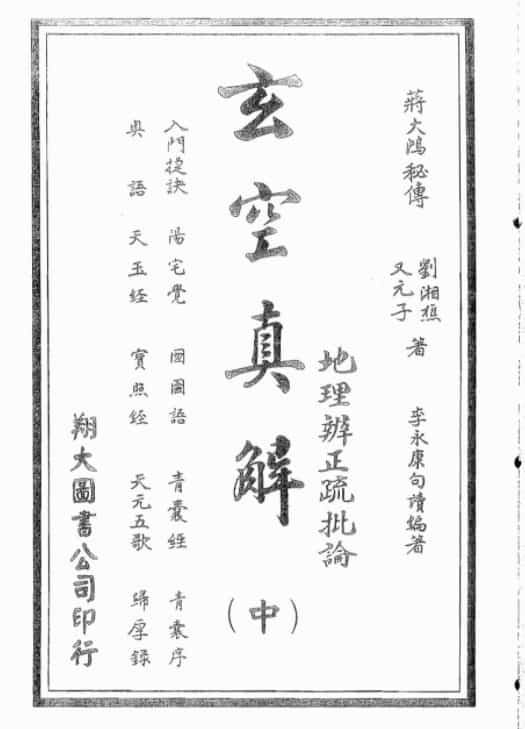 蔣大鴻秘傳
劉湘樵
又元子
著
李永康句讀編著
地理辨正疏批論
玄空真解
（中）
入門捷訣 陽宅覺 囬囬語 青囊經 青囊序
奧語 天玉經 寶照經 天元五歌 歸厚錄
翔大圖書公司印行